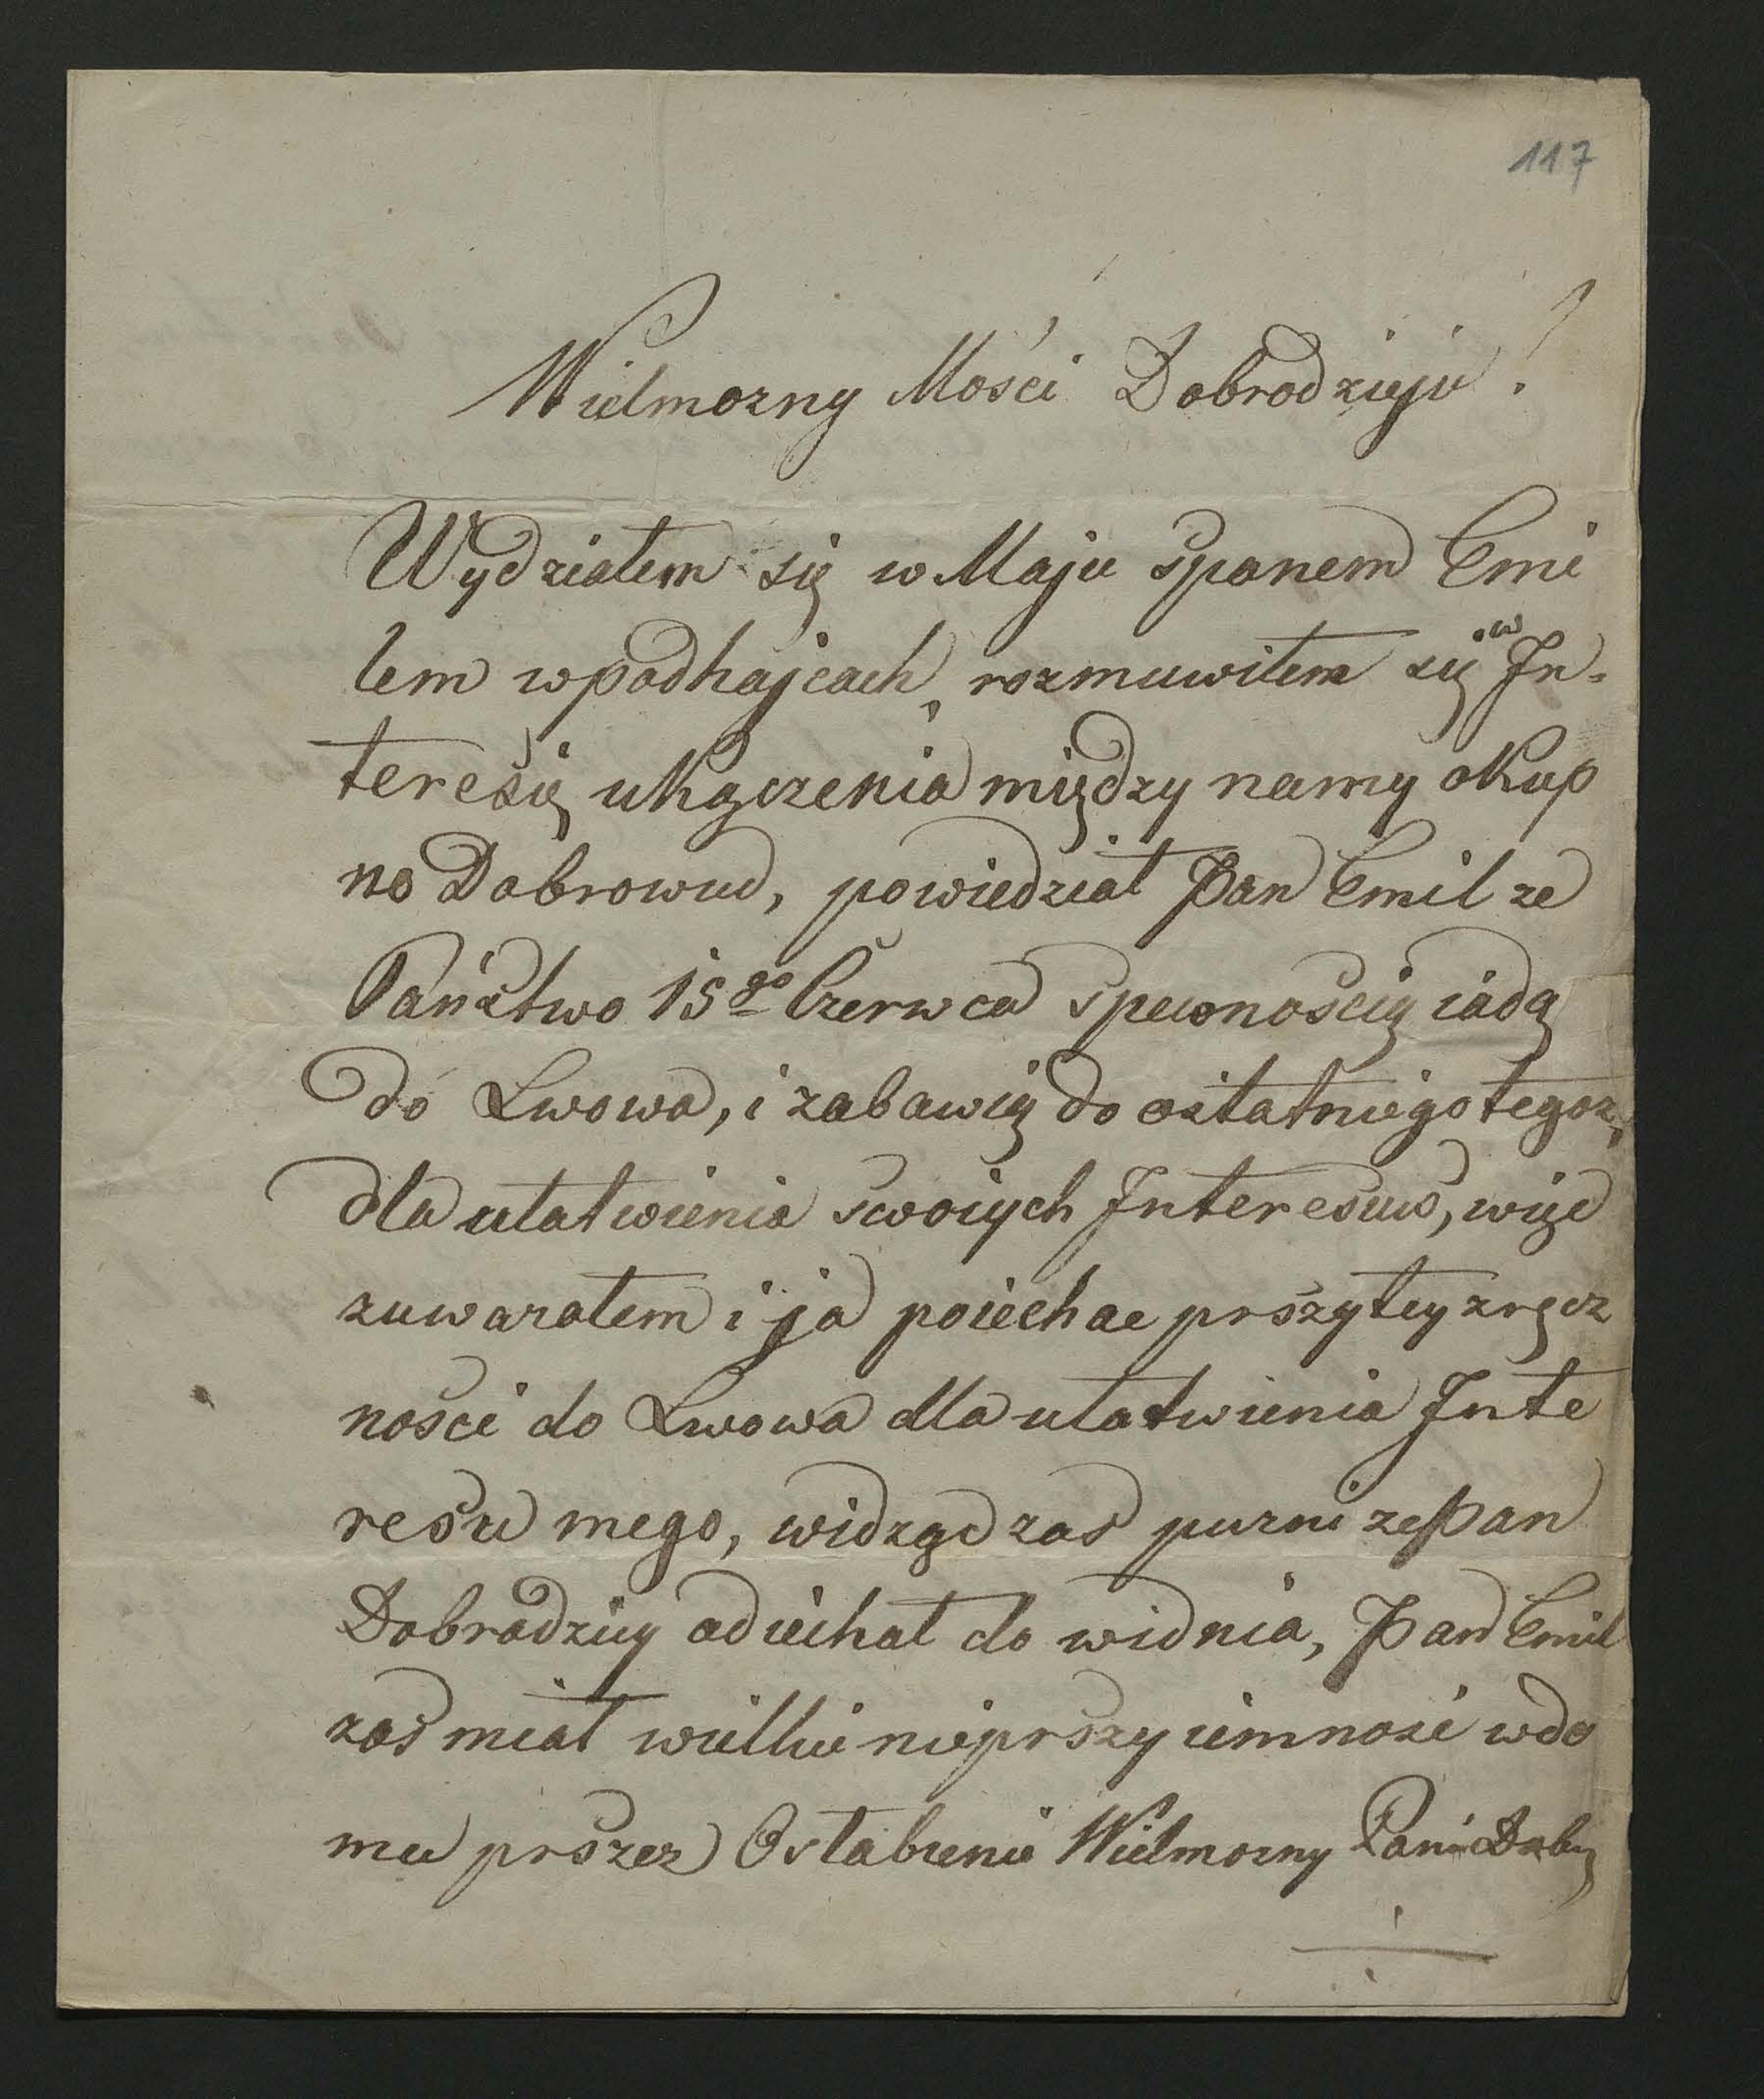 117
Wielmozny Mości Dobrodzieju!
Wydziałem się w Maju spanem Emi
lem wpodhajcach, rozmuwiłem się w In-
teresię ukączenia między namy okup
no Dobrowud, powiedział Pan Emil ze
Państwo 15go Czerwca spewnoscią iadą
do Lwowa, i zabawią do ostatniego tegoz,
dla ułatwienia swoiych Interesuw, więc
zuwazałem i ja poiechac przytey zręcz
nosci do Lwowa dla ułatwienia Inte
resu mego, widząc zas purni ze Pan
Dobrodziey adiechał do widnia, Pan Emil
zas miał wielkie nieprszyiemnosć wdo
mu prszez Osłabienie Wielmozny Pani Dobrę